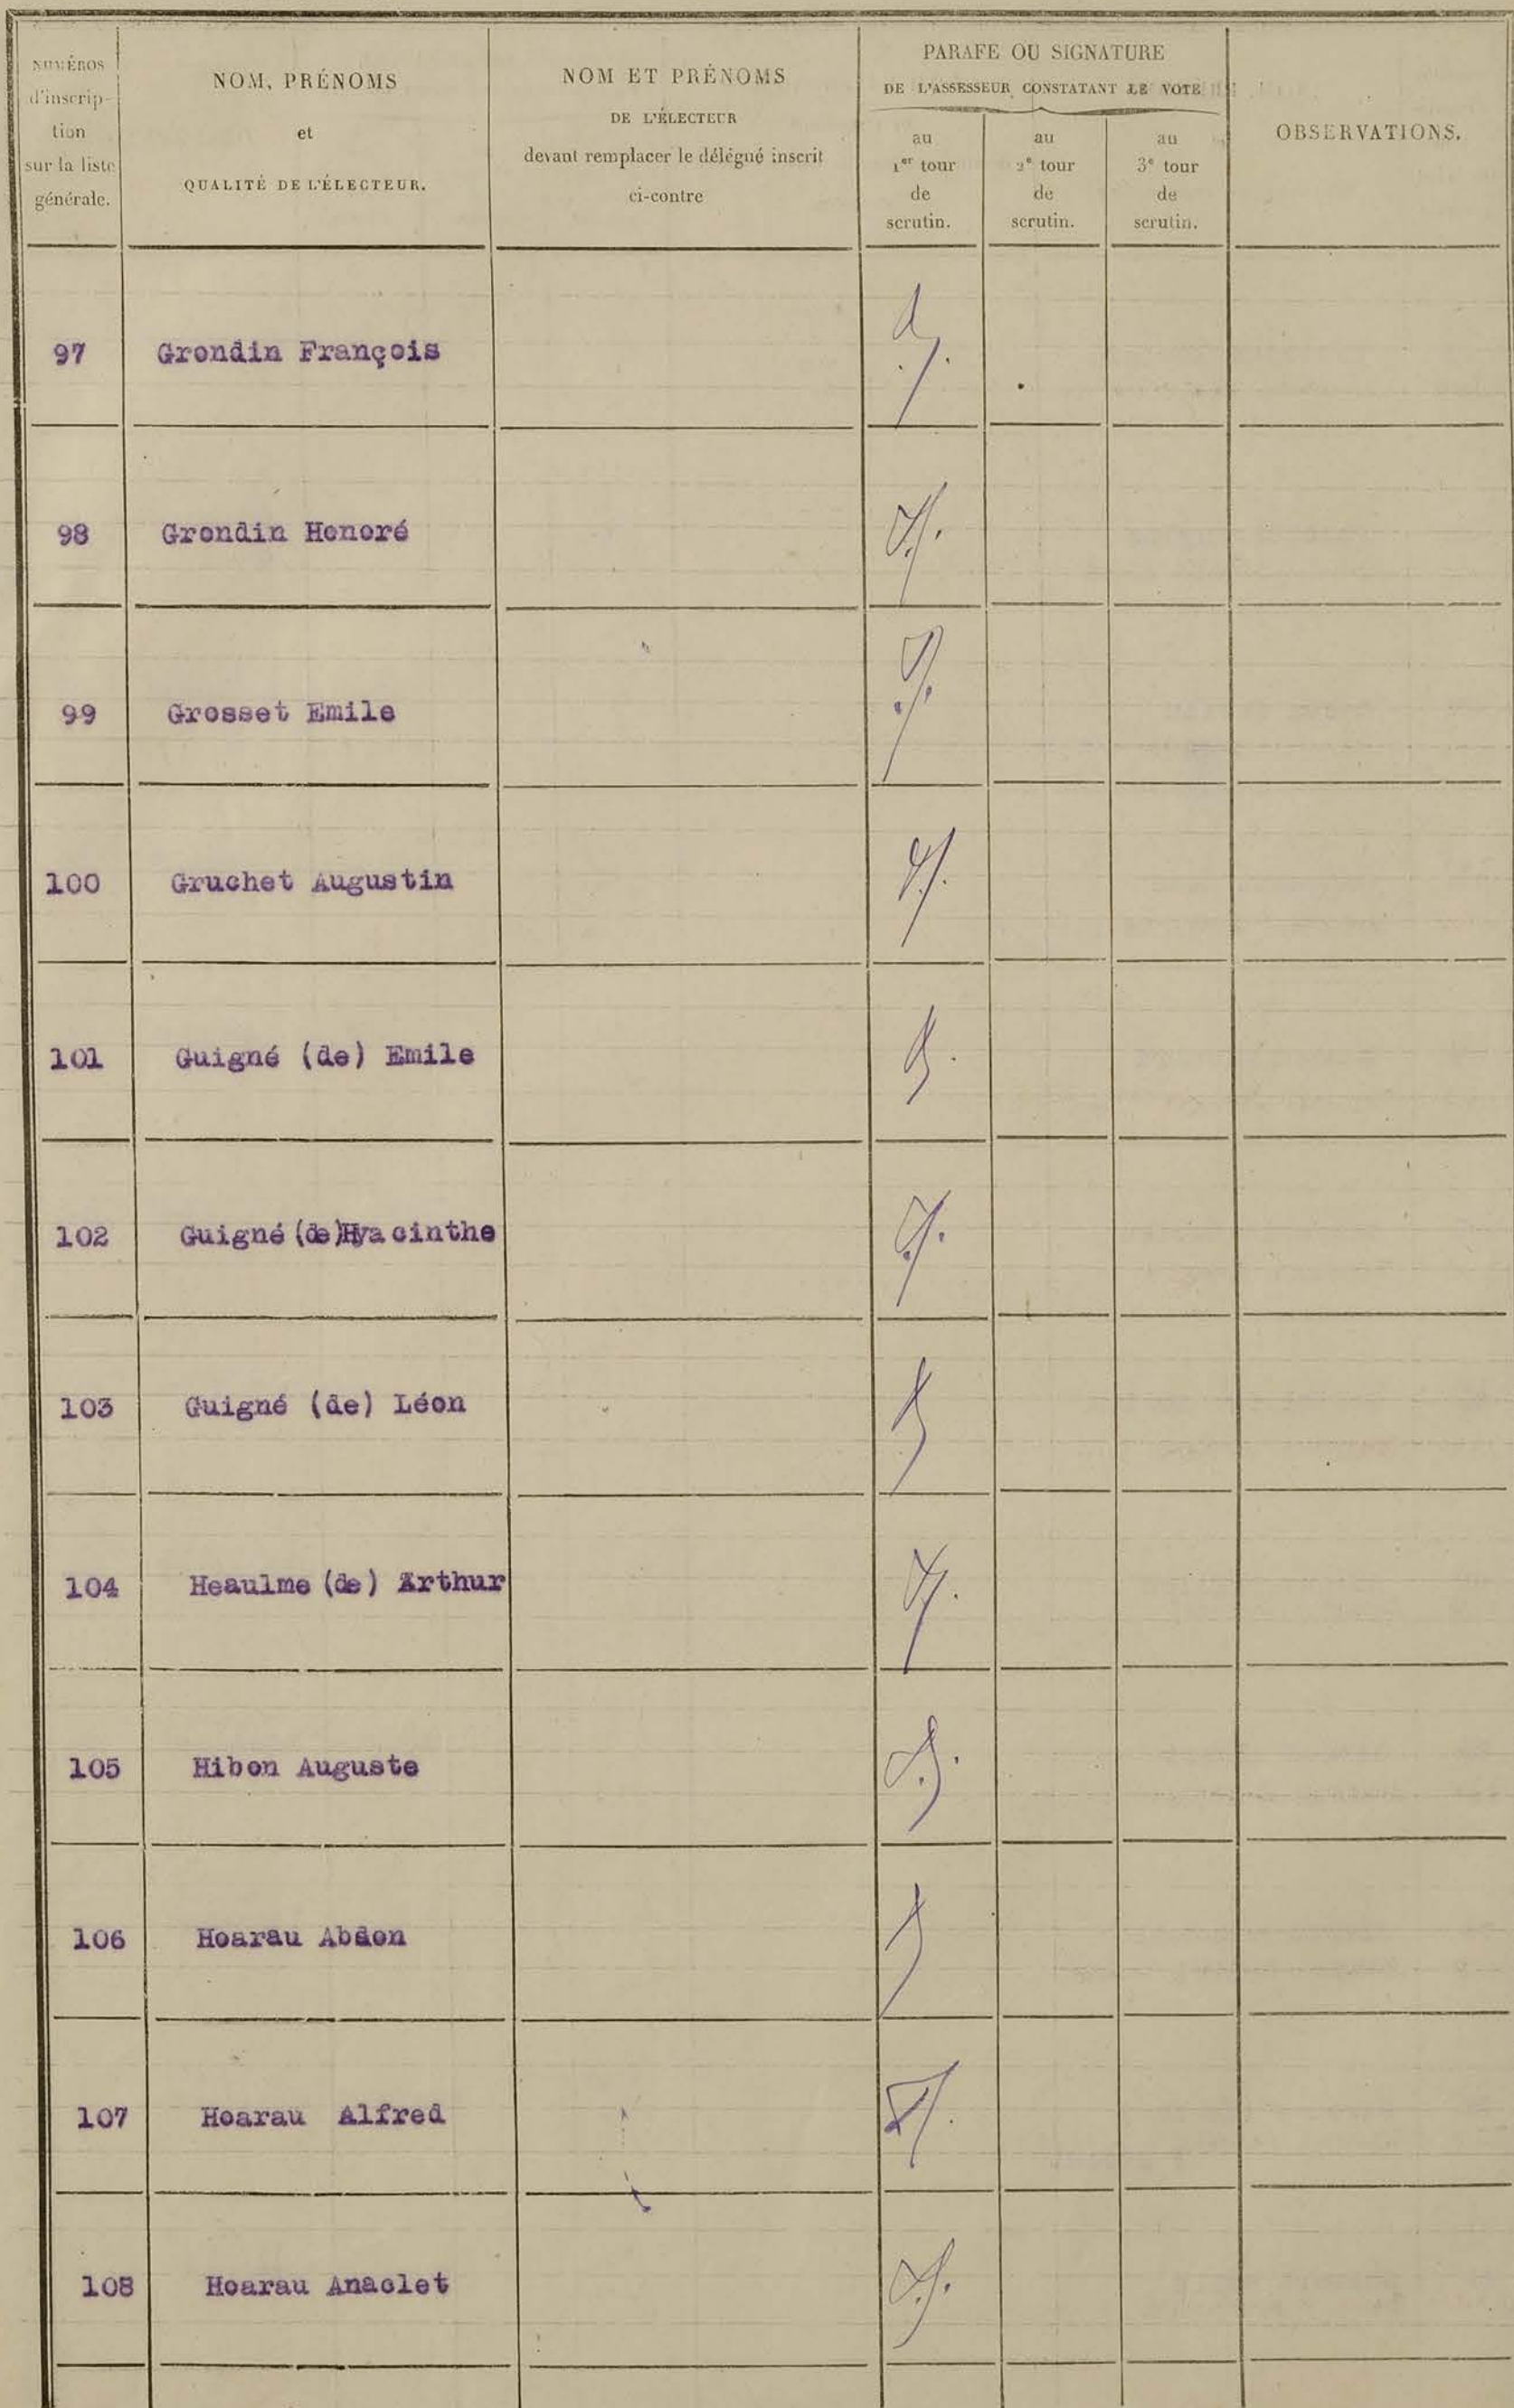 NUMÉROS
d'inscrip-
tion
sur la liste
générale.
NOM, PRÉNOMS
et
QUALITÉ DE L'ÉLECTEUR.
NOM ET PRÉNOMS
DE L'ÉLECTEUR
devant remplacer le délégué inscrit
ci-contre
PARAFE OU SIGNATURE
DE L'ASSESSEUR CONSTATANT LE VOTE
au
1er tour
de
scrutin.
au
2e tour
de
scrutin.
au
3e tour
de
scrutin.
OBSERVATIONS.
97 Grondin François
98 Grondin Honoré
99 Grosset Emile
100 Gruchet Augustin
101 Guigné (de) Emile
102 Guigné (de) Hyacinthe
103 Guigné (de) Léon
104 Heaulme (de) Arthur
105 Hibon Auguste
106 Hoarau Abdon
107 Hoarau Alfred
108 Hoarau Anaclet